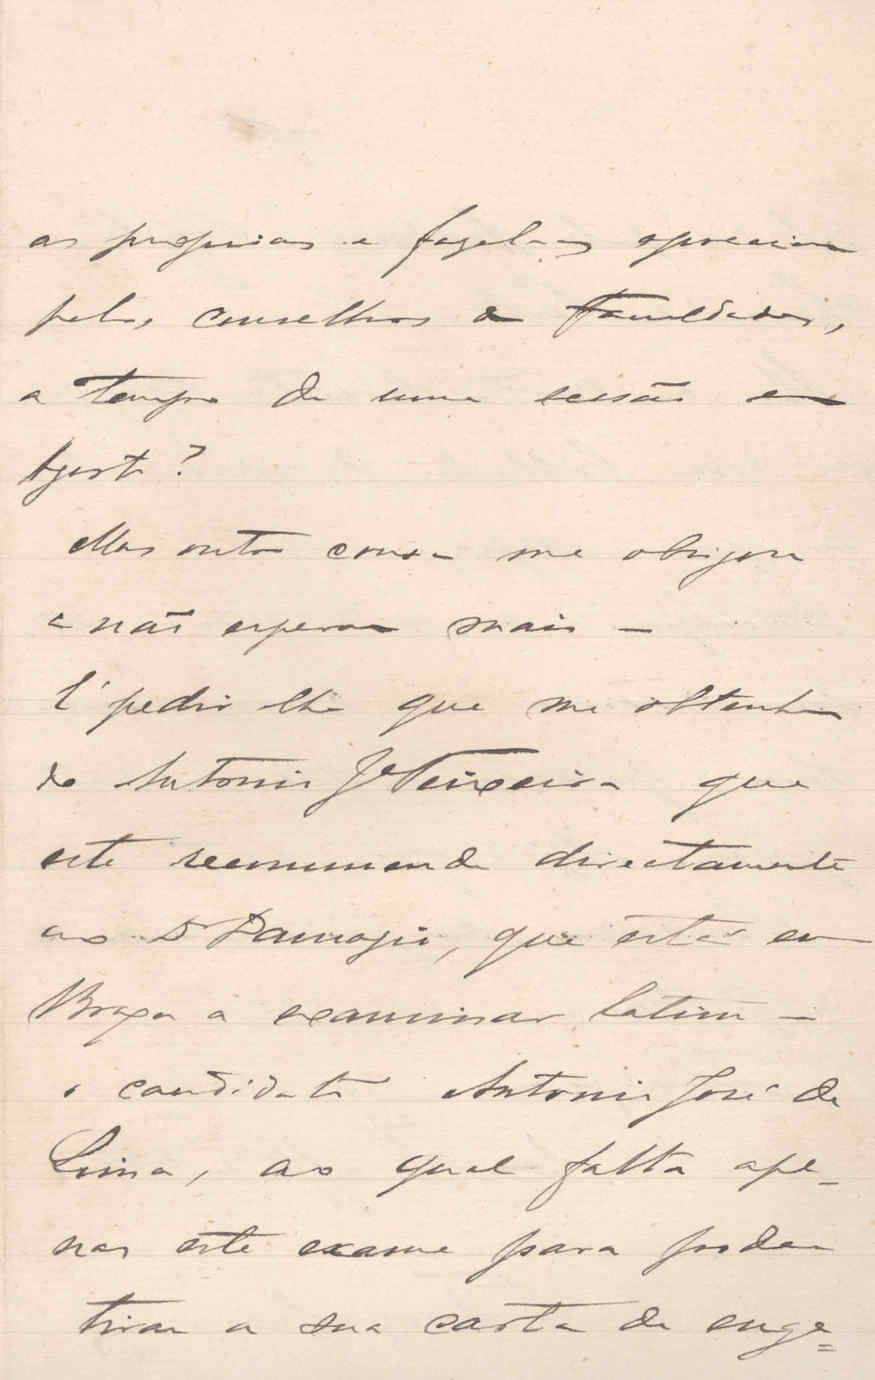 as proprias e fazel-as apreciar
pelos conselhos de Faculdades,
a tempo de uma sessão em
Agosto?
Mas outra cousa me obrigou
a não esperar mais —
É pedir lhe que me obtenha
do Antonio Jé Teixeira que
este recommende directamente
ao Dr Damasio, que está em
Braga a examinar latim —
o candidato Antonio José de
Lima, ao qual falta ape-
nas este exame para poder
tirar a sua carta de enge=